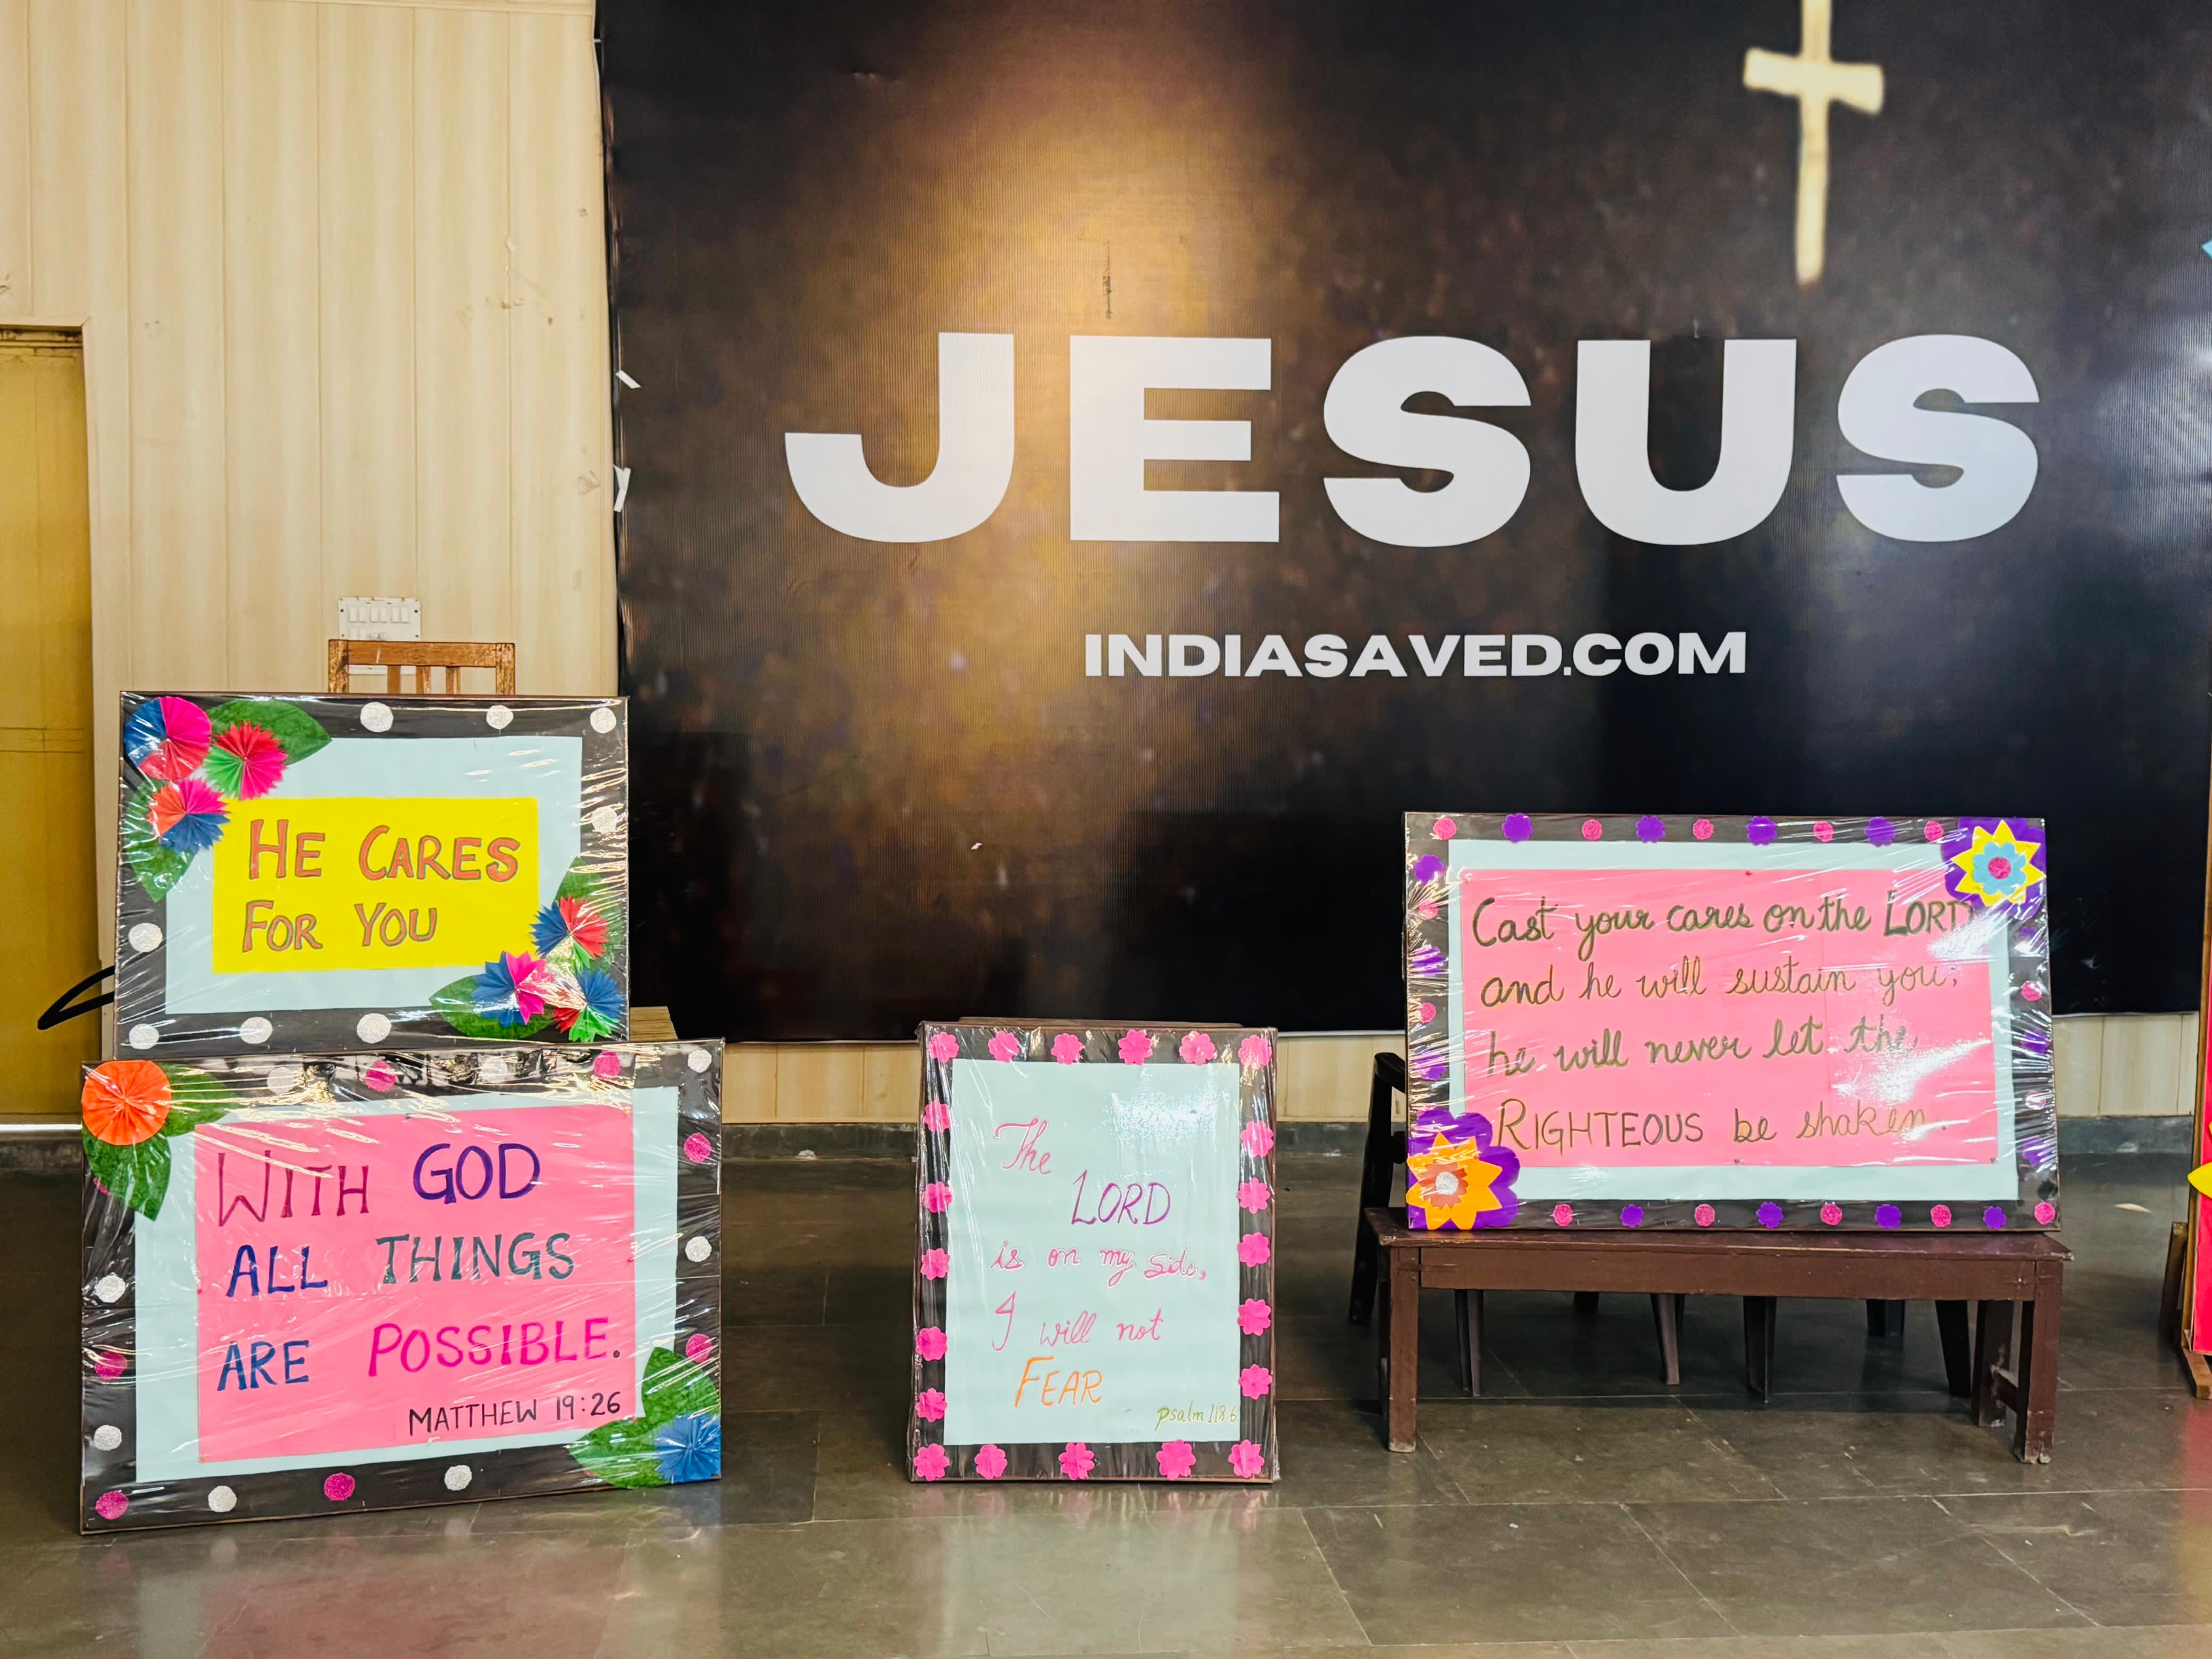 JESUS
INDIASAVED.COM
HE CARES
FOR YOU
WITH GOD
ALL THINGS
ARE POSSIBLE.
MATTHEW 19:26
The
LORD
is on my side,
I will not
FEAR
Psalm 118:6
Cast your cares on the LORD
and he will sustain you;
he will never let the
RIGHTEOUS be shaken.